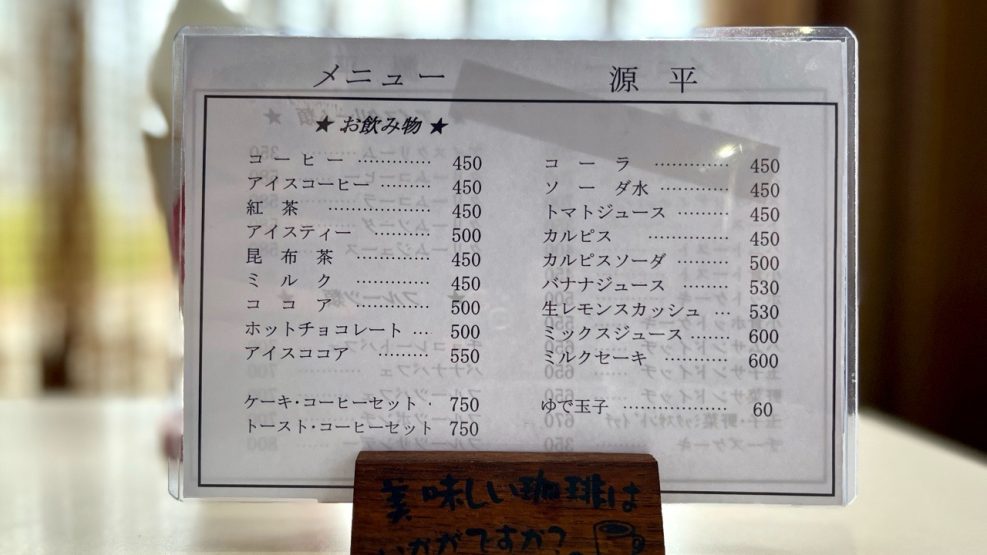 メニュー
源 平
★ お飲み物 ★
コーヒー ………… 450
アイスコーヒー ……… 450
紅 茶 …………… 450
アイスティー ……… 500
昆 布 茶 ………… 450
ミ ル ク ………… 450
コ コ ア ………… 500
ホットチョコレート … 500
アイスココア ……… 550
ケーキ・コーヒーセット・ 750
トースト・コーヒーセット 750
コ ー ラ ………… 450
ソ ー ダ水 ………… 450
トマトジュース ……… 450
カルピス ………… 450
カルピスソーダ ……… 500
バナナジュース ……… 530
生レモンスカッシュ … 530
ミックスジュース …… 600
ミルクセーキ ………… 600
ゆで玉子 ……………… 60
美味しい珈琲は
いかがですか?